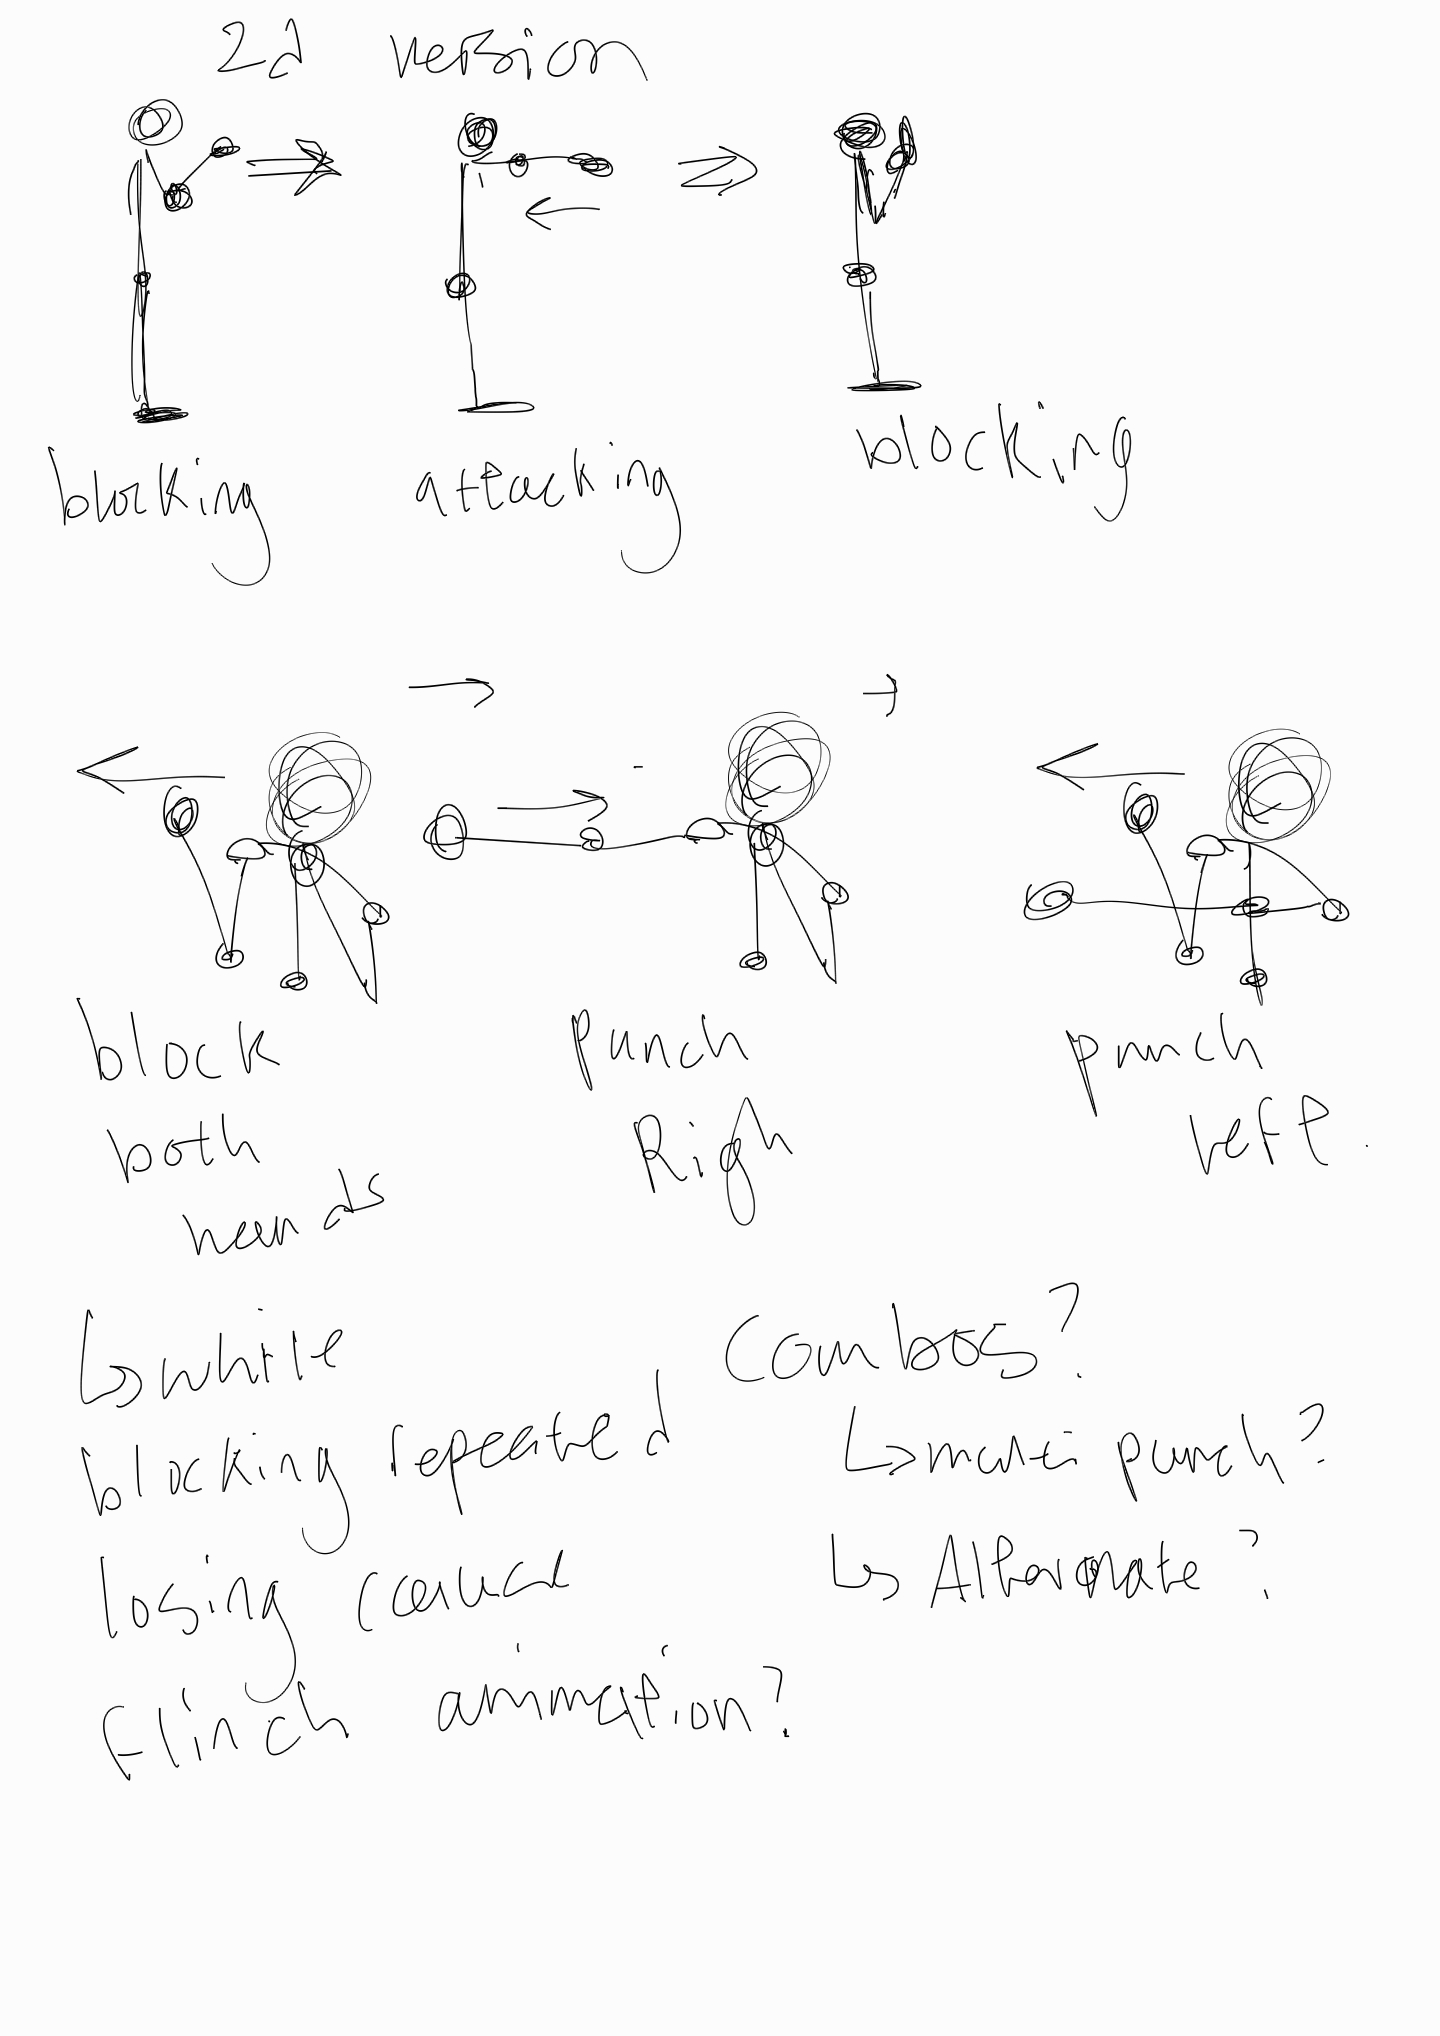 2d version
blocking
attacking
blocking
block
both
hands
punch
Righ
punch
Left.
↳ while
blocking repeated
losing cause
flinch animation?
Combos?
↳ multi punch?
↳ Alternate?